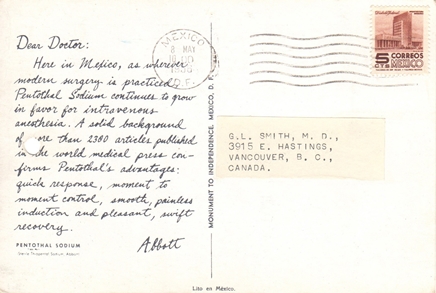 Dear Doctor:
Here in Mexico, as wherever
modern surgery is practiced,
Pentothal Sodium continues to grow
in favor for intravenous
anesthesia. A solid background
of ore than 2300 articles published
in the world medical press con-
firms Pentothal's advantages:
quick response, moment to
moment control, smooth, painless
induction and pleasant, swift
recovery.
Abbott
PENTOTHAL SODIUM
MONUMENT TO INDEPENDENCE, MEXICO, D. F.
MEXICO
MAY
D.F.
5 CORREOS
CTS MEXICO
G.L. SMITH, M. D.,
3915 E. HASTINGS,
VANCOUVER, B. C.,
CANADA.
Lito en México.